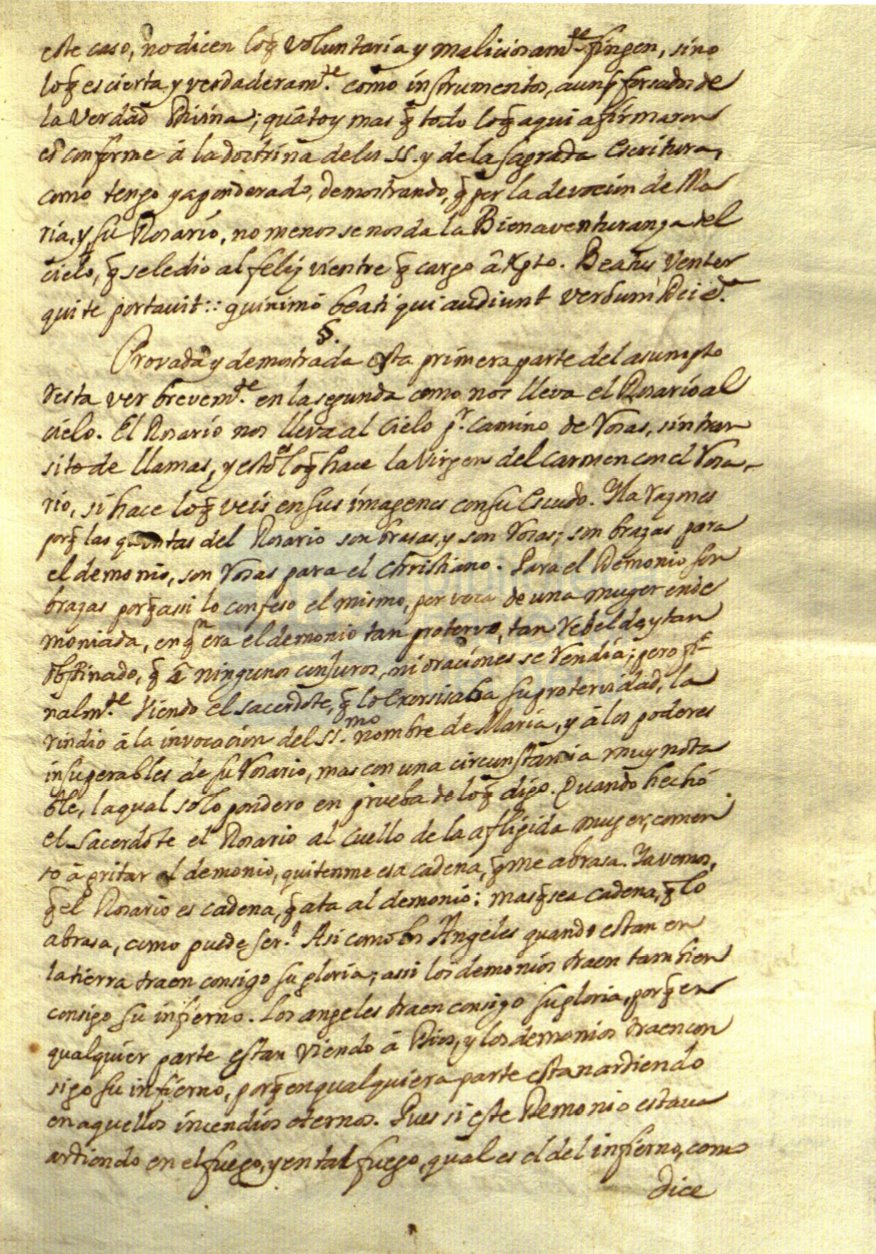 este caso, no dicen loq̃ voluntaria y maliciosam.te fingen, sino
loq̃ es cierta y verdaderam.te como instrumentos, aunq̃ forsados de
la Verdad Divina; quãto y mas q̃ todo loq̃ aqui afirmaron
es conforme â la doctrina delos SS. y de la Sagrada Escritura,
como tengo ya ponderado, demostrando, q̃ por la devocion de Ma
ria, y su Rosario, no menos se nos da la Bienaventuranza del
cielo, q̃ se le dio al feliz vientre q̃ cargo â Xpto. Beatus Venter
qui te portavit:: quinimò beati qui audiunt verbum Dei &.
§.
Provada y demostrada esta primera parte del asumpto
resta ver brevem.te en la segunda como nos lleva el Rosario al
cielo. El Rosario nos lleva al Cielo p.r camino de Rosas, sin tran
sito de llamas, y esto es loq̃ hace la Virgen del Carmen con el Rosa-
rio, si hace loq̃ veis en sus imagenes con su Escudo. Y la razon es
porq̃ las quentas del Rosario son brasas, y son Rosas; son brazas para
el demonio, son Rosas para el Christiano. Para el Demonio son
brazas porq̃ assi lo confeso el mismo, por voca de una muger ende
moniada, en q.n era el demonio tan protervo, tan rebelde, y tan
obstinado, q̃ â ningunos conjuros, ni oraciones se rendia; pero fi
nalm.te viendo el sacerdote, q̃ lo Exorsisaba su protervidad, la
rindio â la invocacion del SS.mo nombre de Maria, y â los poderes
insuperables de su Rosario, mas con una circunstansia muy nota
ble, la qual solo pondero en prueba de loq̃ digo. Quando hechó
el sacerdote el Rosario al cuello de la afligida muger, comen
so â gritar el demonio, quitenme esa cadena, q̃ me abrasa. Ya vemos,
q̃ el Rosario es cadena, q̃ ata al demonio: mas q̃ sea cadena, q̃ lo
abrasa, como puede ser? Asi como los Angeles quando estan en
la tierra traen consigo su gloria; assi los demonios traen tambien
consigo su infierno. Los angeles traen consigo su gloria, porq̃ en
qualquier parte estan viendo â Dios, y los demonios traen con
sigo su infierno, porq̃ en qualquiera parte estan ardiendo
en aquellos incendios eternos. Pues si este Demonio estava
ardiendo en el fuego, y en tal fuego, qual es el del infierno, como
dice